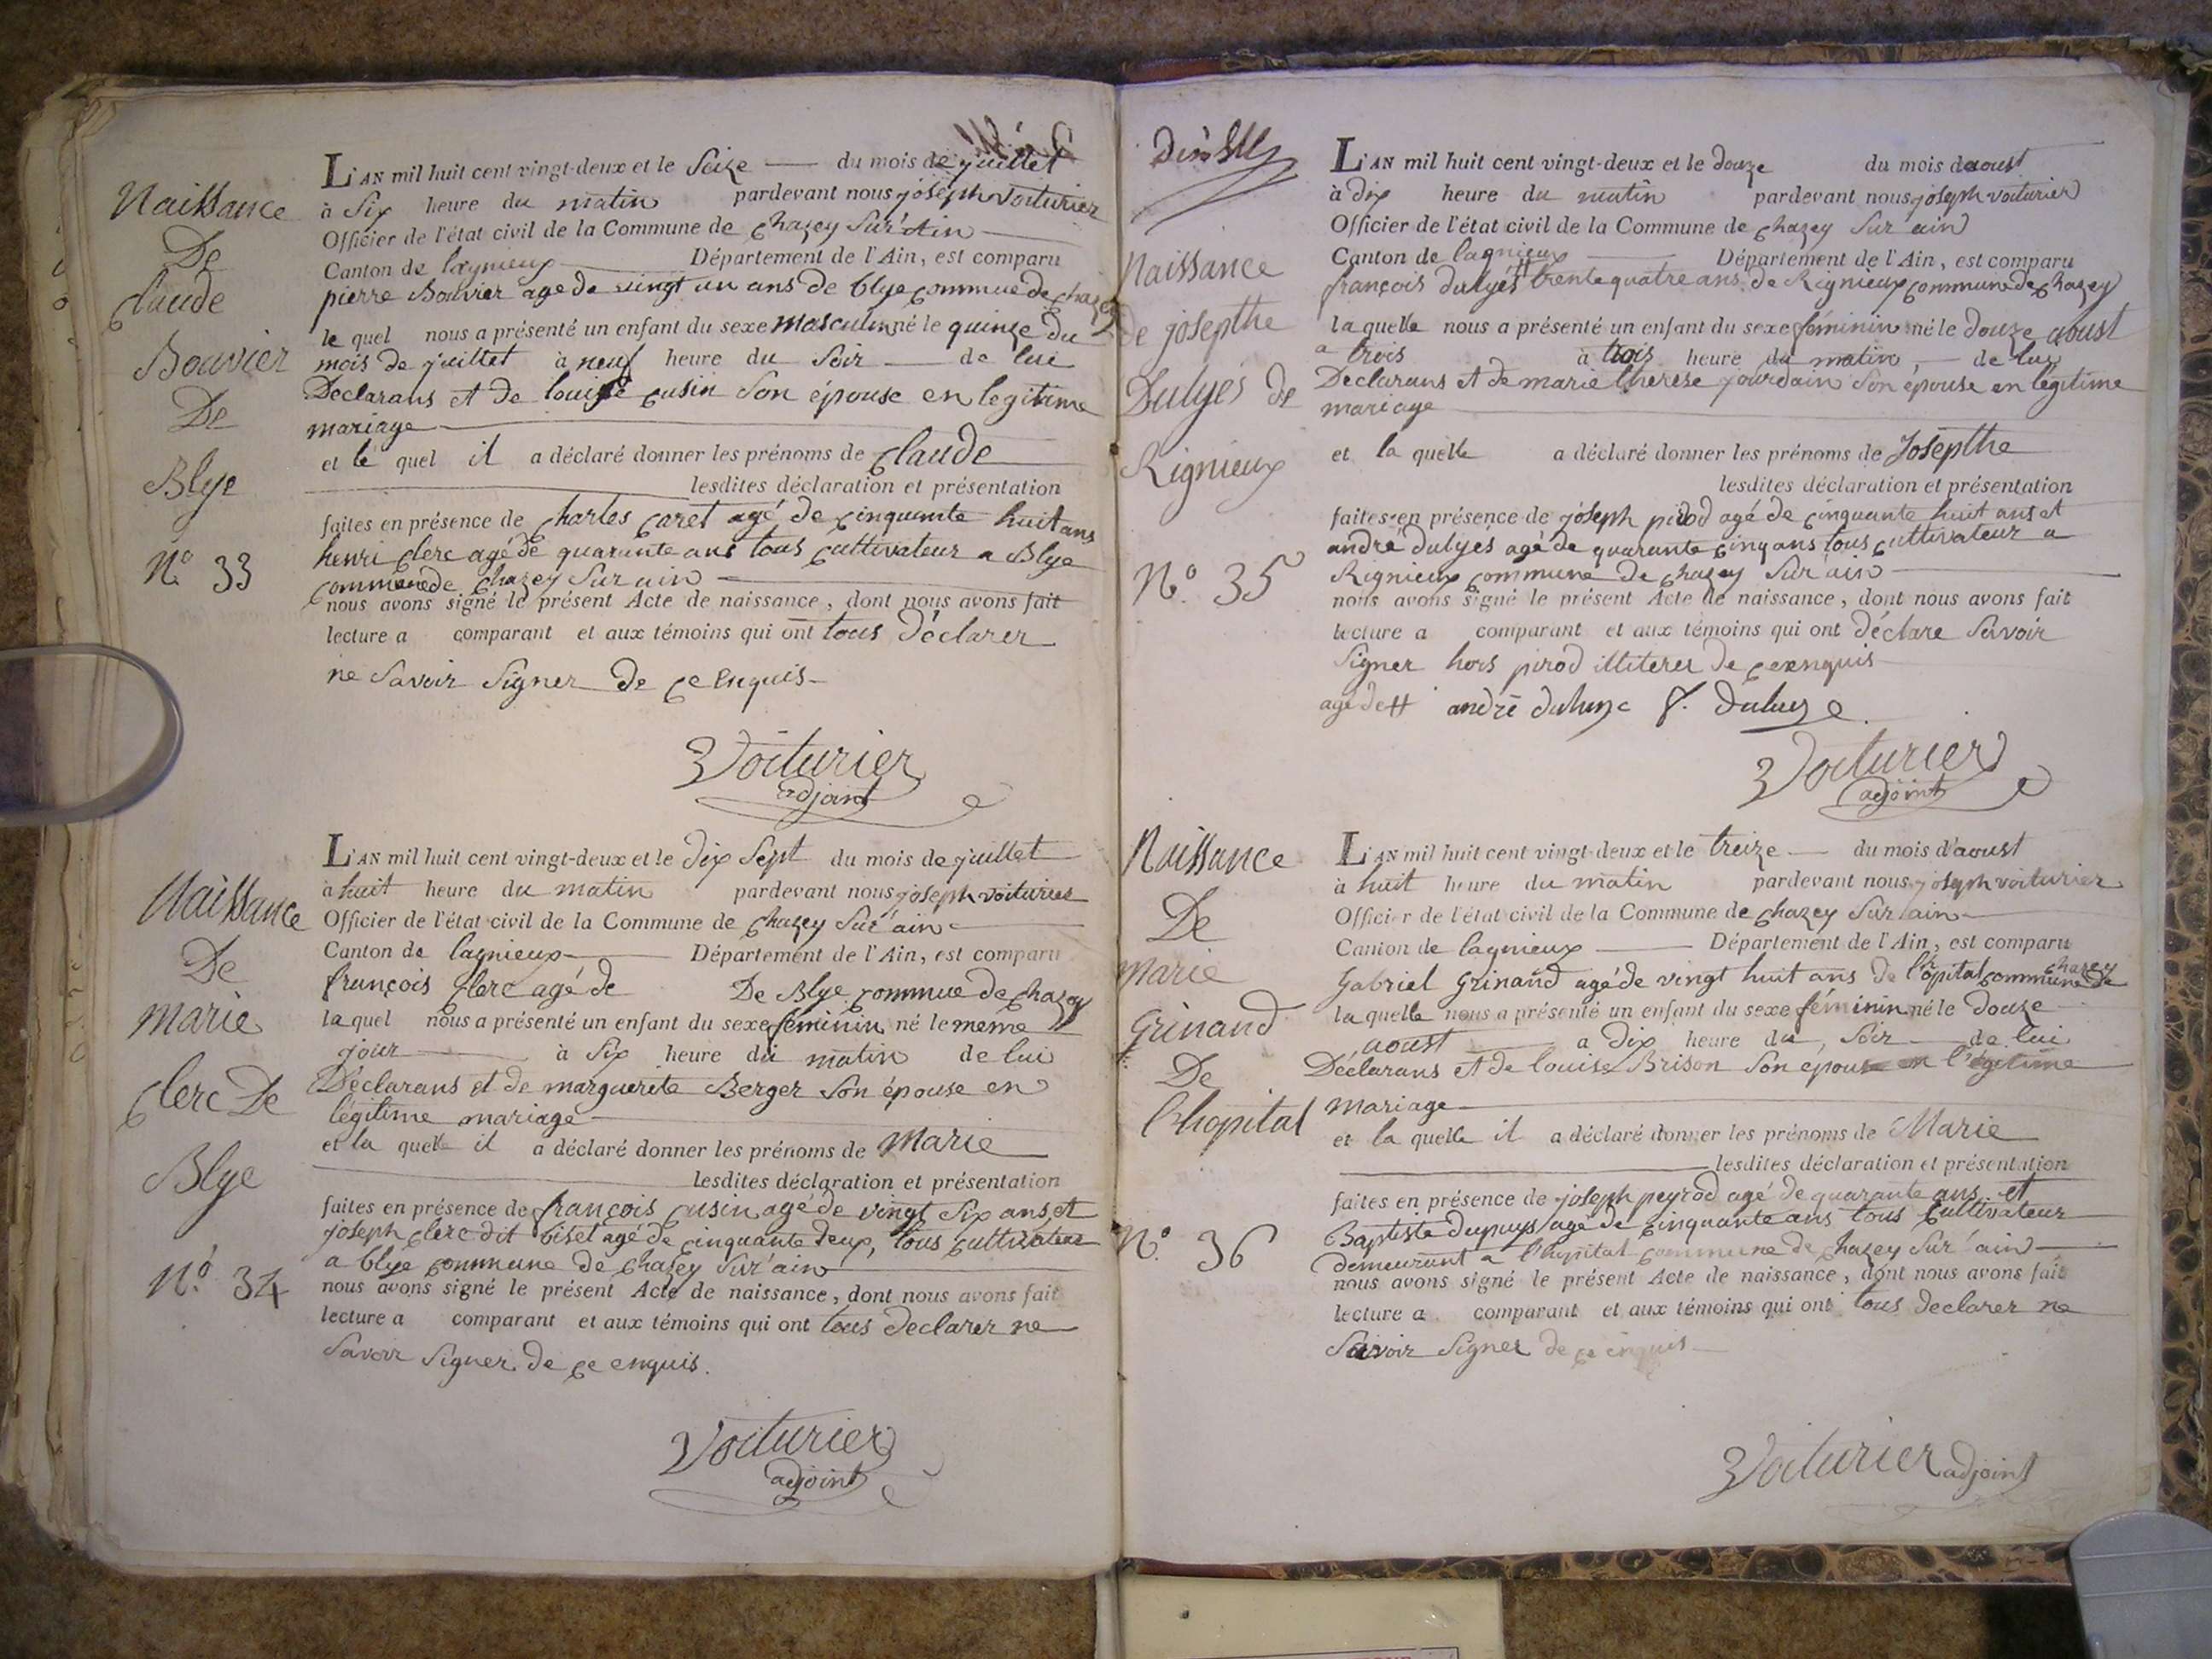 Naissance
De
Claude
Bouvier
De
Blye
N.º 33
L'AN mil huit cent vingt-deux et le Seize du mois de juillet
à Six heure du matin pardevant nous joseph voiturier
Officier de l'état civil de la Commune de Chazey Sur Ain
Canton de lagnieux Département de l'Ain, est comparu
pierre Bouvier agé de vingt un ans de blye commue de chazey
le quel nous a présenté un enfant du sexe masculin né le quinze du
mois de juillet à neuf heure du Soir de lui
Declarans et de louise cusin Son épouse en legitime
mariage
et le quel il a déclaré donner les prénoms de Claude
lesdites déclaration et présentation
faites en présence de Charles Caret agé de cinquante huit ans
henri clerc agé de quarante ans tous cultivateur a Blye
commune de Chazey Sur ain
nous avons signé le présent Acte de naissance, dont nous avons fait
lecture a comparant et aux témoins qui ont tous Déclarer
ne Savoir Signer De ce enquis
Voiturier
adjoint
Naissance
De
marie
Clerc De
Blye
N.º 34
L'AN mil huit cent vingt-deux et le Dix Sept du mois de juillet
à huit heure du matin pardevant nous joseph voiturier
Officier de l'état civil de la Commune de Chazey Sur ain
Canton de lagnieux Département de l'Ain, est comparu
françois Clerc agé de De Blye commue de chazey
la quel nous a présenté un enfant du sexe féminin né le meme
jour à Six heure du matin de lui
Déclarans et de marguerite Berger Son épouse en
légitime mariage
et la quelle il a déclaré donner les prénoms de Marie
lesdites déclaration et présentation
faites en présence de françois Cusin agé de vingt Six ans, et
joseph clerc dit biset agé de cinquante deux, tous cultivateur
a blye commune de Chazey Sur ain
nous avons signé le présent Acte de naissance, dont nous avons fait
lecture a comparant et aux témoins qui ont tous Declarer ne
Savoir Signer De ce enquis.
Voiturier
adjoint
Naissance
de josepthe
Dulyés de
Rignieux
N.º 35
L'AN mil huit cent vingt-deux et le douze du mois daoust
à dix heure du matin pardevant nous joseph voiturier
Officier de l'état civil de la Commune de chazey Sur ain
Canton de lagnieux Département de l'Ain, est comparu
françois dulyés # trente quatre ans de Rignieux commune de chazey
la quelle nous a présenté un enfant du sexe féminin né le Douze aoust
a trois à trois heure du matin, de lui
Declarans et de marie therese jourdain Son épouse en légitime
mariage
et la quelle a déclaré donner les prénoms de Josepthe
lesdites déclaration et présentation
faites en présence de joseph pirod agé de cinquante huit ans et
andré dulyes agé de quarante cinq ans tous cultivateur a
Rignieux commune de Chazey Sur ain
nous avons signé le présent Acte de naissance, dont nous avons fait
lecture a comparant et aux témoins qui ont déclare Savoir
Signer hors pirod illiterer De ce enquis
agé de #
Voiturier
adjoint
Naissance
De
marie
Grinand
De
Lhopital
N.º 36
L'AN mil huit cent vingt-deux et le treize du mois d'aoust
à huit heure du matin pardevant nous joseph voiturier
Officier de l'état civil de la Commune de Chazey Sur ain
Canton de lagnieux Département de l'Ain, est comparu
Gabriel Grinand agé de vingt huit ans de l'hopital commune de chazey
la quelle nous a présenté un enfant du sexe féminin né le Douze
aoust a dix heure du, Soir de lui
Déclarans et de louise Brison Son épouse en l'égitime
mariage
et la quelle il a déclaré donner les prénoms de Marie
lesdites déclaration et présentation
faites en présence de joseph peyrod agé de quarante ans et
Baptiste dupuys agé de cinquante ans tous Cultivateur
demeurant a l'hopital commune de chazey Sur ain
nous avons signé le présent Acte de naissance, dont nous avons fait
lecture a comparant et aux témoins qui ont tous declarer ne
Savoir Signer de ce enquis
Voiturier adjoint